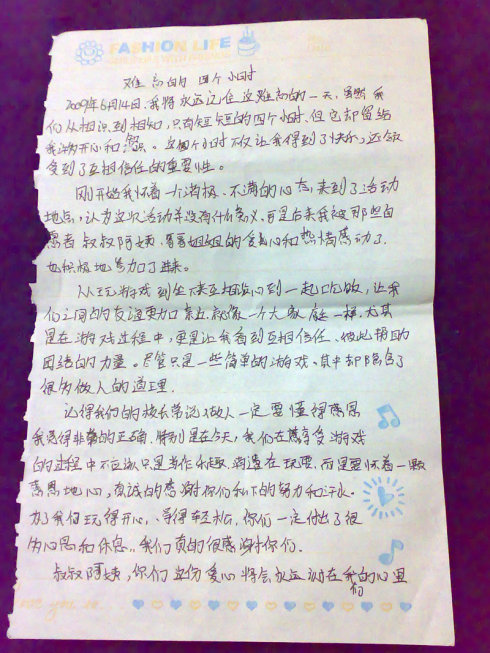 FASHION LIFE
难忘的四个小时
2009年6月14日,我将永远记住这难忘的一天,虽然我
们从相识到相知,只有短短的四个小时,但它却留给
我满开心和。这四个小时不仅让我得到了快乐,还领
受到了互相信任的重要性。
刚开始我怀着一片消极、不满的心态,来到了活动
地点,认为这次活动并没有什么意义,可是后来我被那些自
愿者叔叔阿姨、哥哥姐姐的爱心和热情感动了,
也积极地参加了进来。
从玩游戏到坐下来互相谈心到一起吃饭,让我
们之间的友谊更加亲近,就像一个大家庭一样,尤其
是在游戏过程中,更是让我看到互相信任、彼此帮助
团结的力量。尽管只是一些简单的游戏、其中却隐含了
很多做人的道理.
记得我们的校长常说:做人一定要懂得感恩
我觉得非常的正确.特别是在今天,我们在感受游戏
的过程中不应该只是当作乐趣,在玩耍.而是要怀着一颗
感恩地心,真诚的感谢你们私下的努力和汗水.
为了我们玩得开心,、学得轻松,你们一定付出了很
多心思和休息,我们真的很感谢你们.
叔叔阿姨,你们这份爱心将会永远 在我们的心里